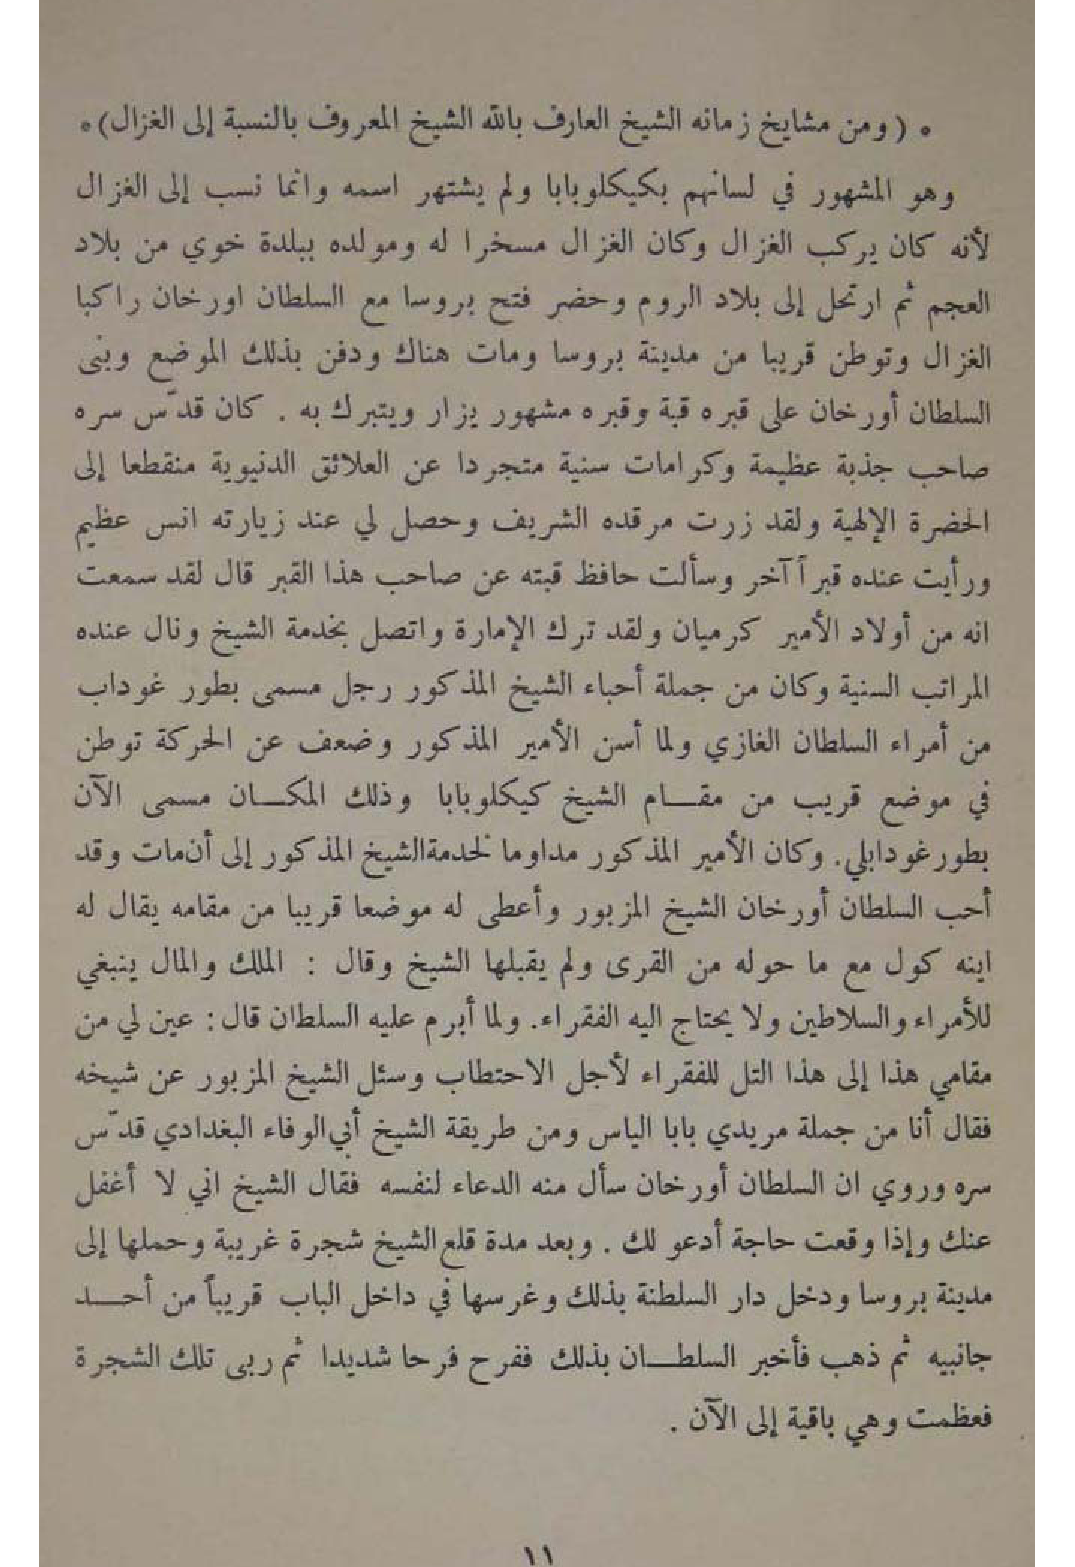 * ( ومن مشايخ زمانه الشيخ العارف بالله الشيخ المعروف بالنسبة إلى الغزال) *
وهو المشهور في لسانهم بكيكلوبابا ولم يشتهر اسمه وانما نسب إلى الغزال
لأنه كان يركب الغزال وكان الغزال مسخرا له ومولده ببلدة خوي من بلاد
العجم ثم ارتحل إلى بلاد الروم وحضر فتح بروسا مع السلطان اورخان راكبا
الغزال وتوطن قريبا من مدينة بروسا ومات هناك ودفن بذلك الموضع وبنى
السلطان أورخان على قبره قبة وقبره مشهور يزار ويتبرك به . كان قدّس سره
صاحب جذبة عظيمة وكرامات سنية متجردا عن العلائق الدنيوية منقطعا إلى
الحضرة الإلهية ولقد زرت مرقده الشريف وحصل لي عند زيارته انس عظيم
ورأيت عنده قبراً آخر وسألت حافظ قبته عن صاحب هذا القبر قال لقد سمعت
انه من أولاد الأمير كرميان ولقد ترك الإمارة واتصل بخدمة الشيخ ونال عنده
المراتب السنية وكان من جملة أحباء الشيخ المذكور رجل مسمى بطور غوداب
من أمراء السلطان الغازي ولما أسن الأمير المذكور وضعف عن الحركة توطن
في موضع قريب من مقـــام الشيخ كيكلوبابا وذلك المكـــان مسمى الآن
بطورغودابلي. وكان الأمير المذكور مداوما لخدمة الشيخ المذكور إلى أن مات وقد
أحب السلطان أورخان الشيخ المزبور وأعطى له موضعا قريبا من مقامه يقال له
اينه كول مع ما حوله من القرى ولم يقبلها الشيخ وقال : الملك والمال ينبغي
للأمراء والسلاطين ولا يحتاج اليه الفقراء. ولما أبرم عليه السلطان قال: عين لي من
مقامي هذا إلى هذا التل للفقراء لأجل الاحتطاب وسئل الشيخ المزبور عن شيخه
فقال أنا من جملة مريدي بابا الياس ومن طريقة الشيخ أبي الوفاء البغدادي قدّس
سره وروي ان السلطان أورخان سأل منه الدعاء لنفسه فقال الشيخ اني لا أغفل
عنك وإذا وقعت حاجة أدعو لك . وبعد مدة قلع الشيخ شجرة غريبة وحملها إلى
مدينة بروسا ودخل دار السلطنة بذلك وغرسها في داخل الباب قريباً من أحـــد
جانبيه ثم ذهب فأخبر السلطـــان بذلك ففرح فرحا شديدا ثم ربى تلك الشجرة
فعظمت وهي باقية إلى الآن .
١١